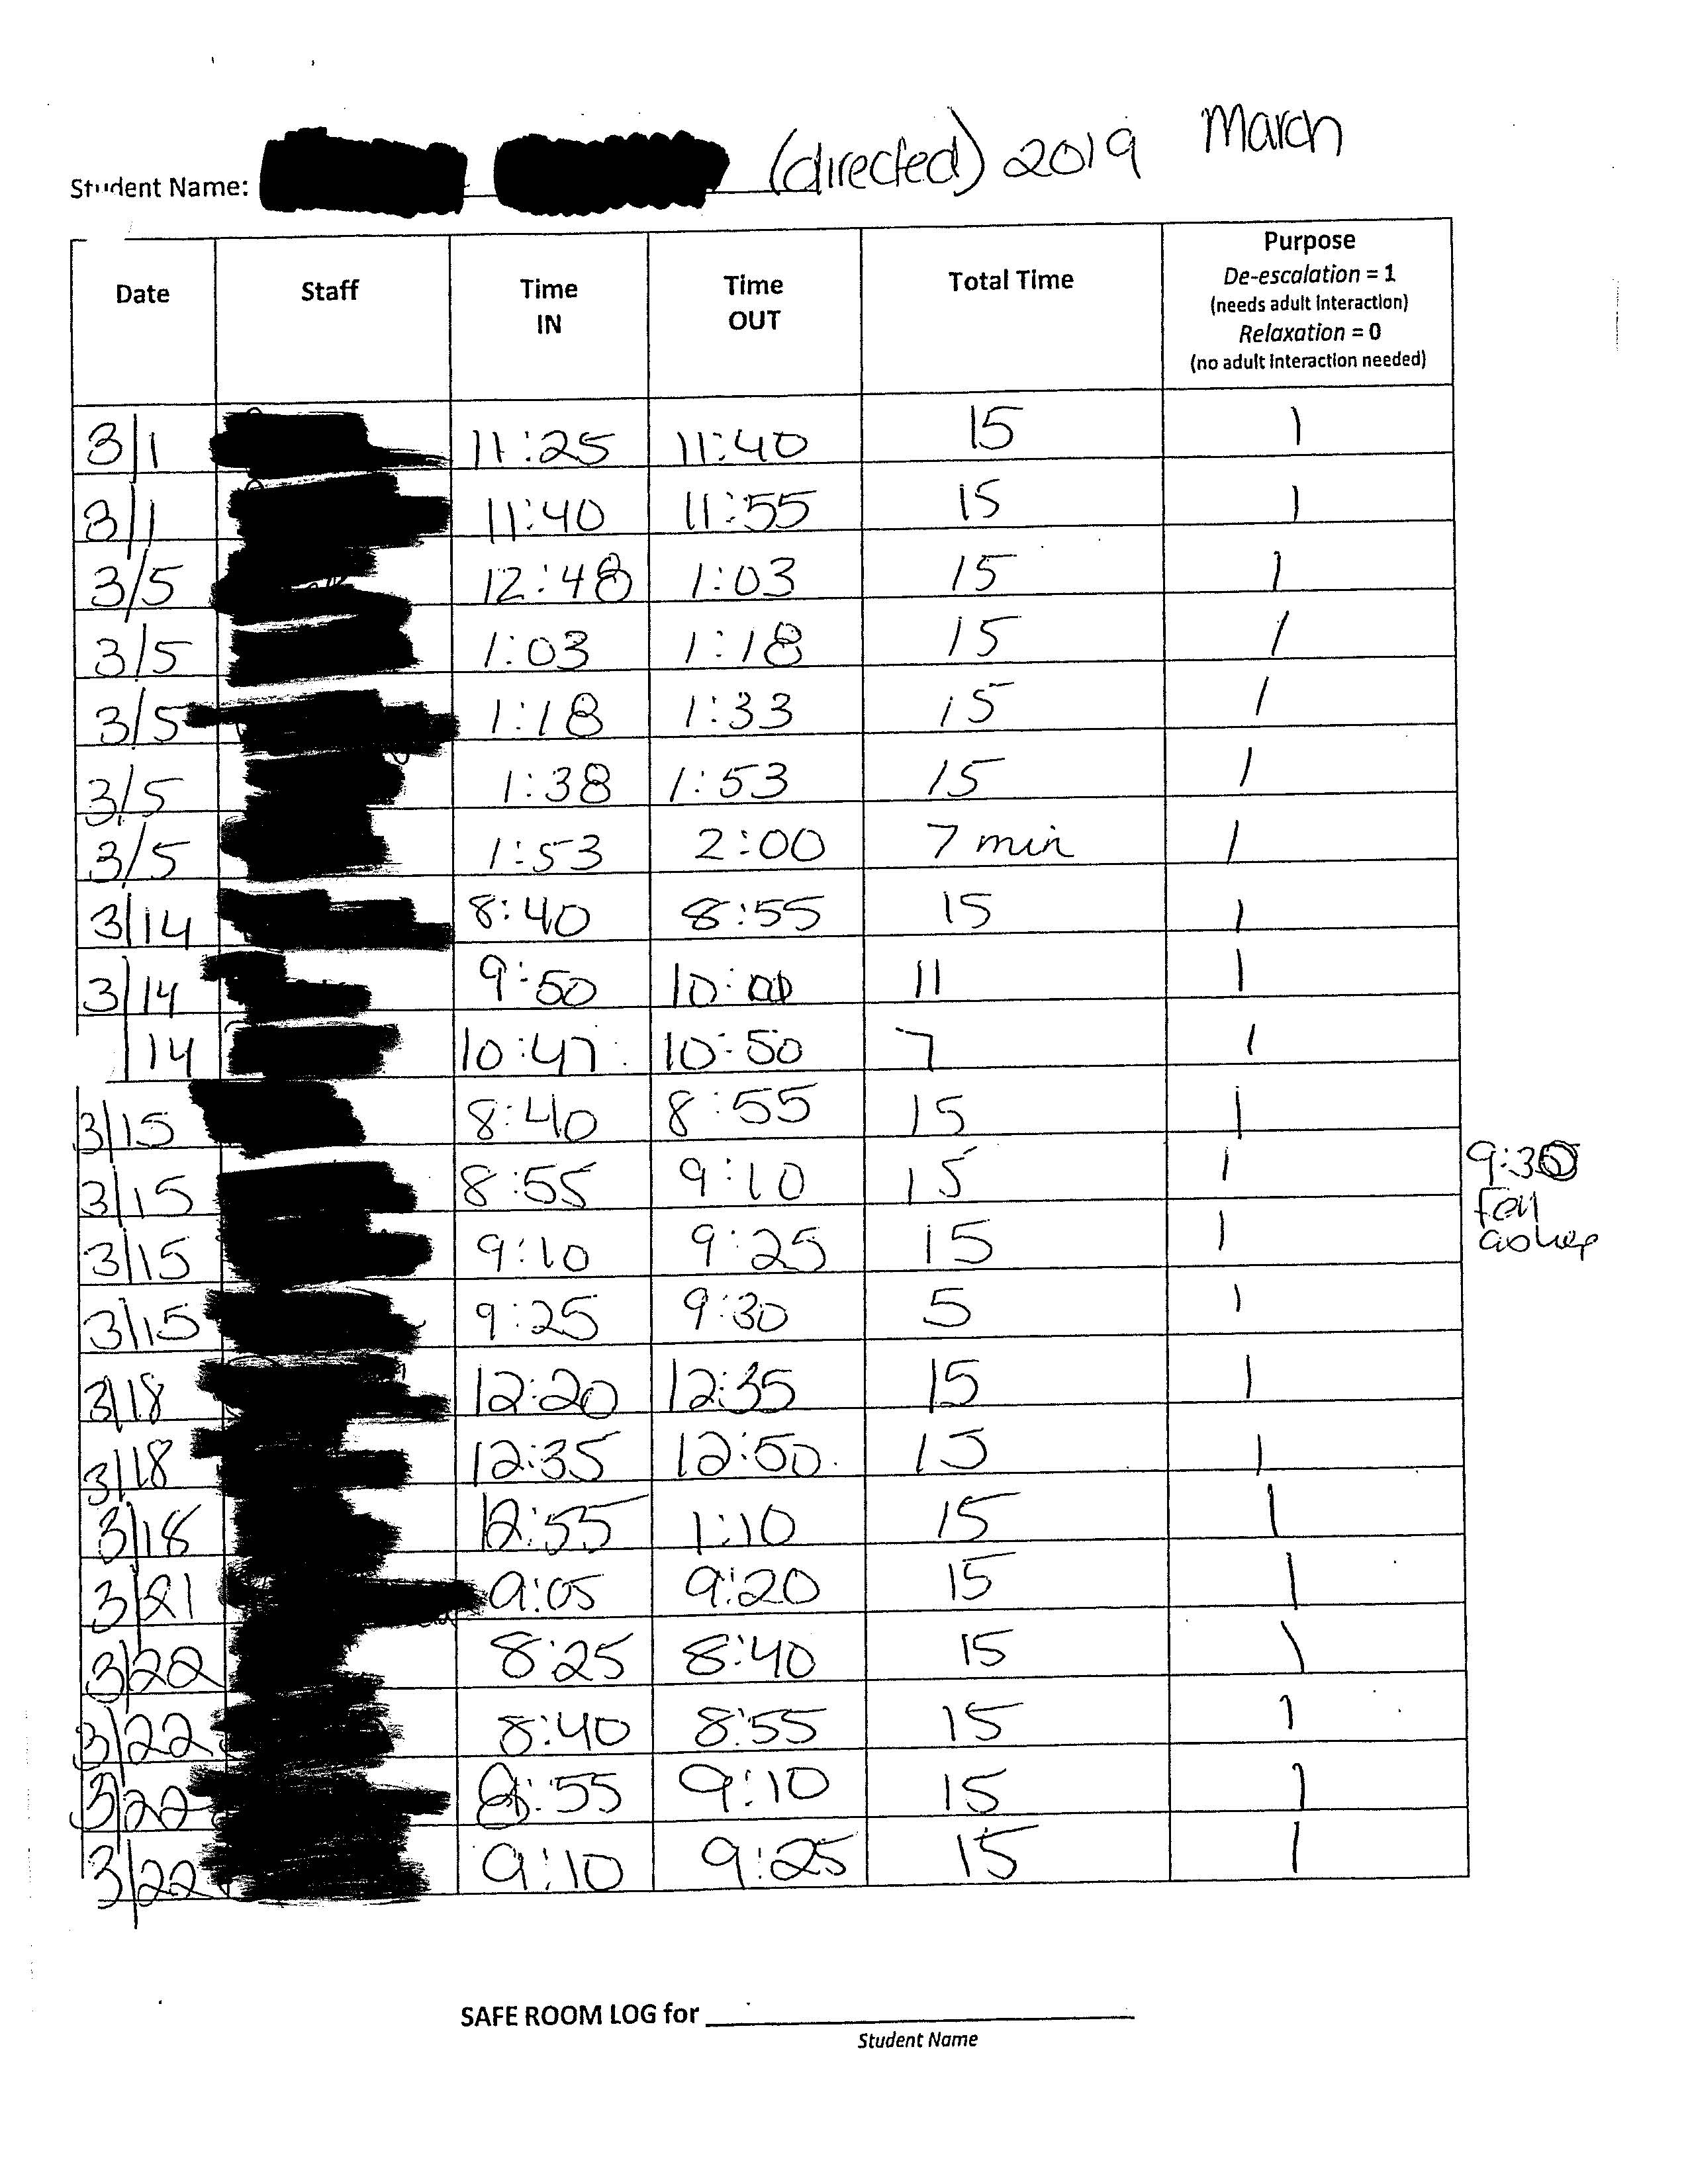 March
Student Name: (directed) 2019
Date Staff Time IN Time OUT Total Time Purpose
De-escalation = 1
(needs adult interaction)
Relaxation = 0
(no adult interaction needed)
3/1 11:25 11:40 15 1
3/1 11:40 11:55 15 1
3/5 12:48 1:03 15 1
3/5 1:03 1:18 15 1
3/5 1:18 1:33 15 1
3/5 1:38 1:53 15 1
3/5 1:53 2:00 7 min 1
3/14 8:40 8:55 15 1
3/14 9:50 11 1
/14 10:47 10:50 7 1
3/15 8:40 8:55 15 1
3/15 8:55 9:10 15 1
9:30
Fell
asleep
3/15 9:10 9:25 15 1
3/15 9:25 9:30 5 1
3/18 12:20 12:35 15 1
3/18 12:35 12:50 15 1
3/18 12:55 1:10 15 1
3/21 9:05 9:20 15 1
3/22 8:25 8:40 15 1
3/22 8:40 8:55 15 1
3/22 8:55 9:10 15 1
3/22 9:10 9:25 15 1
SAFE ROOM LOG for
Student Name